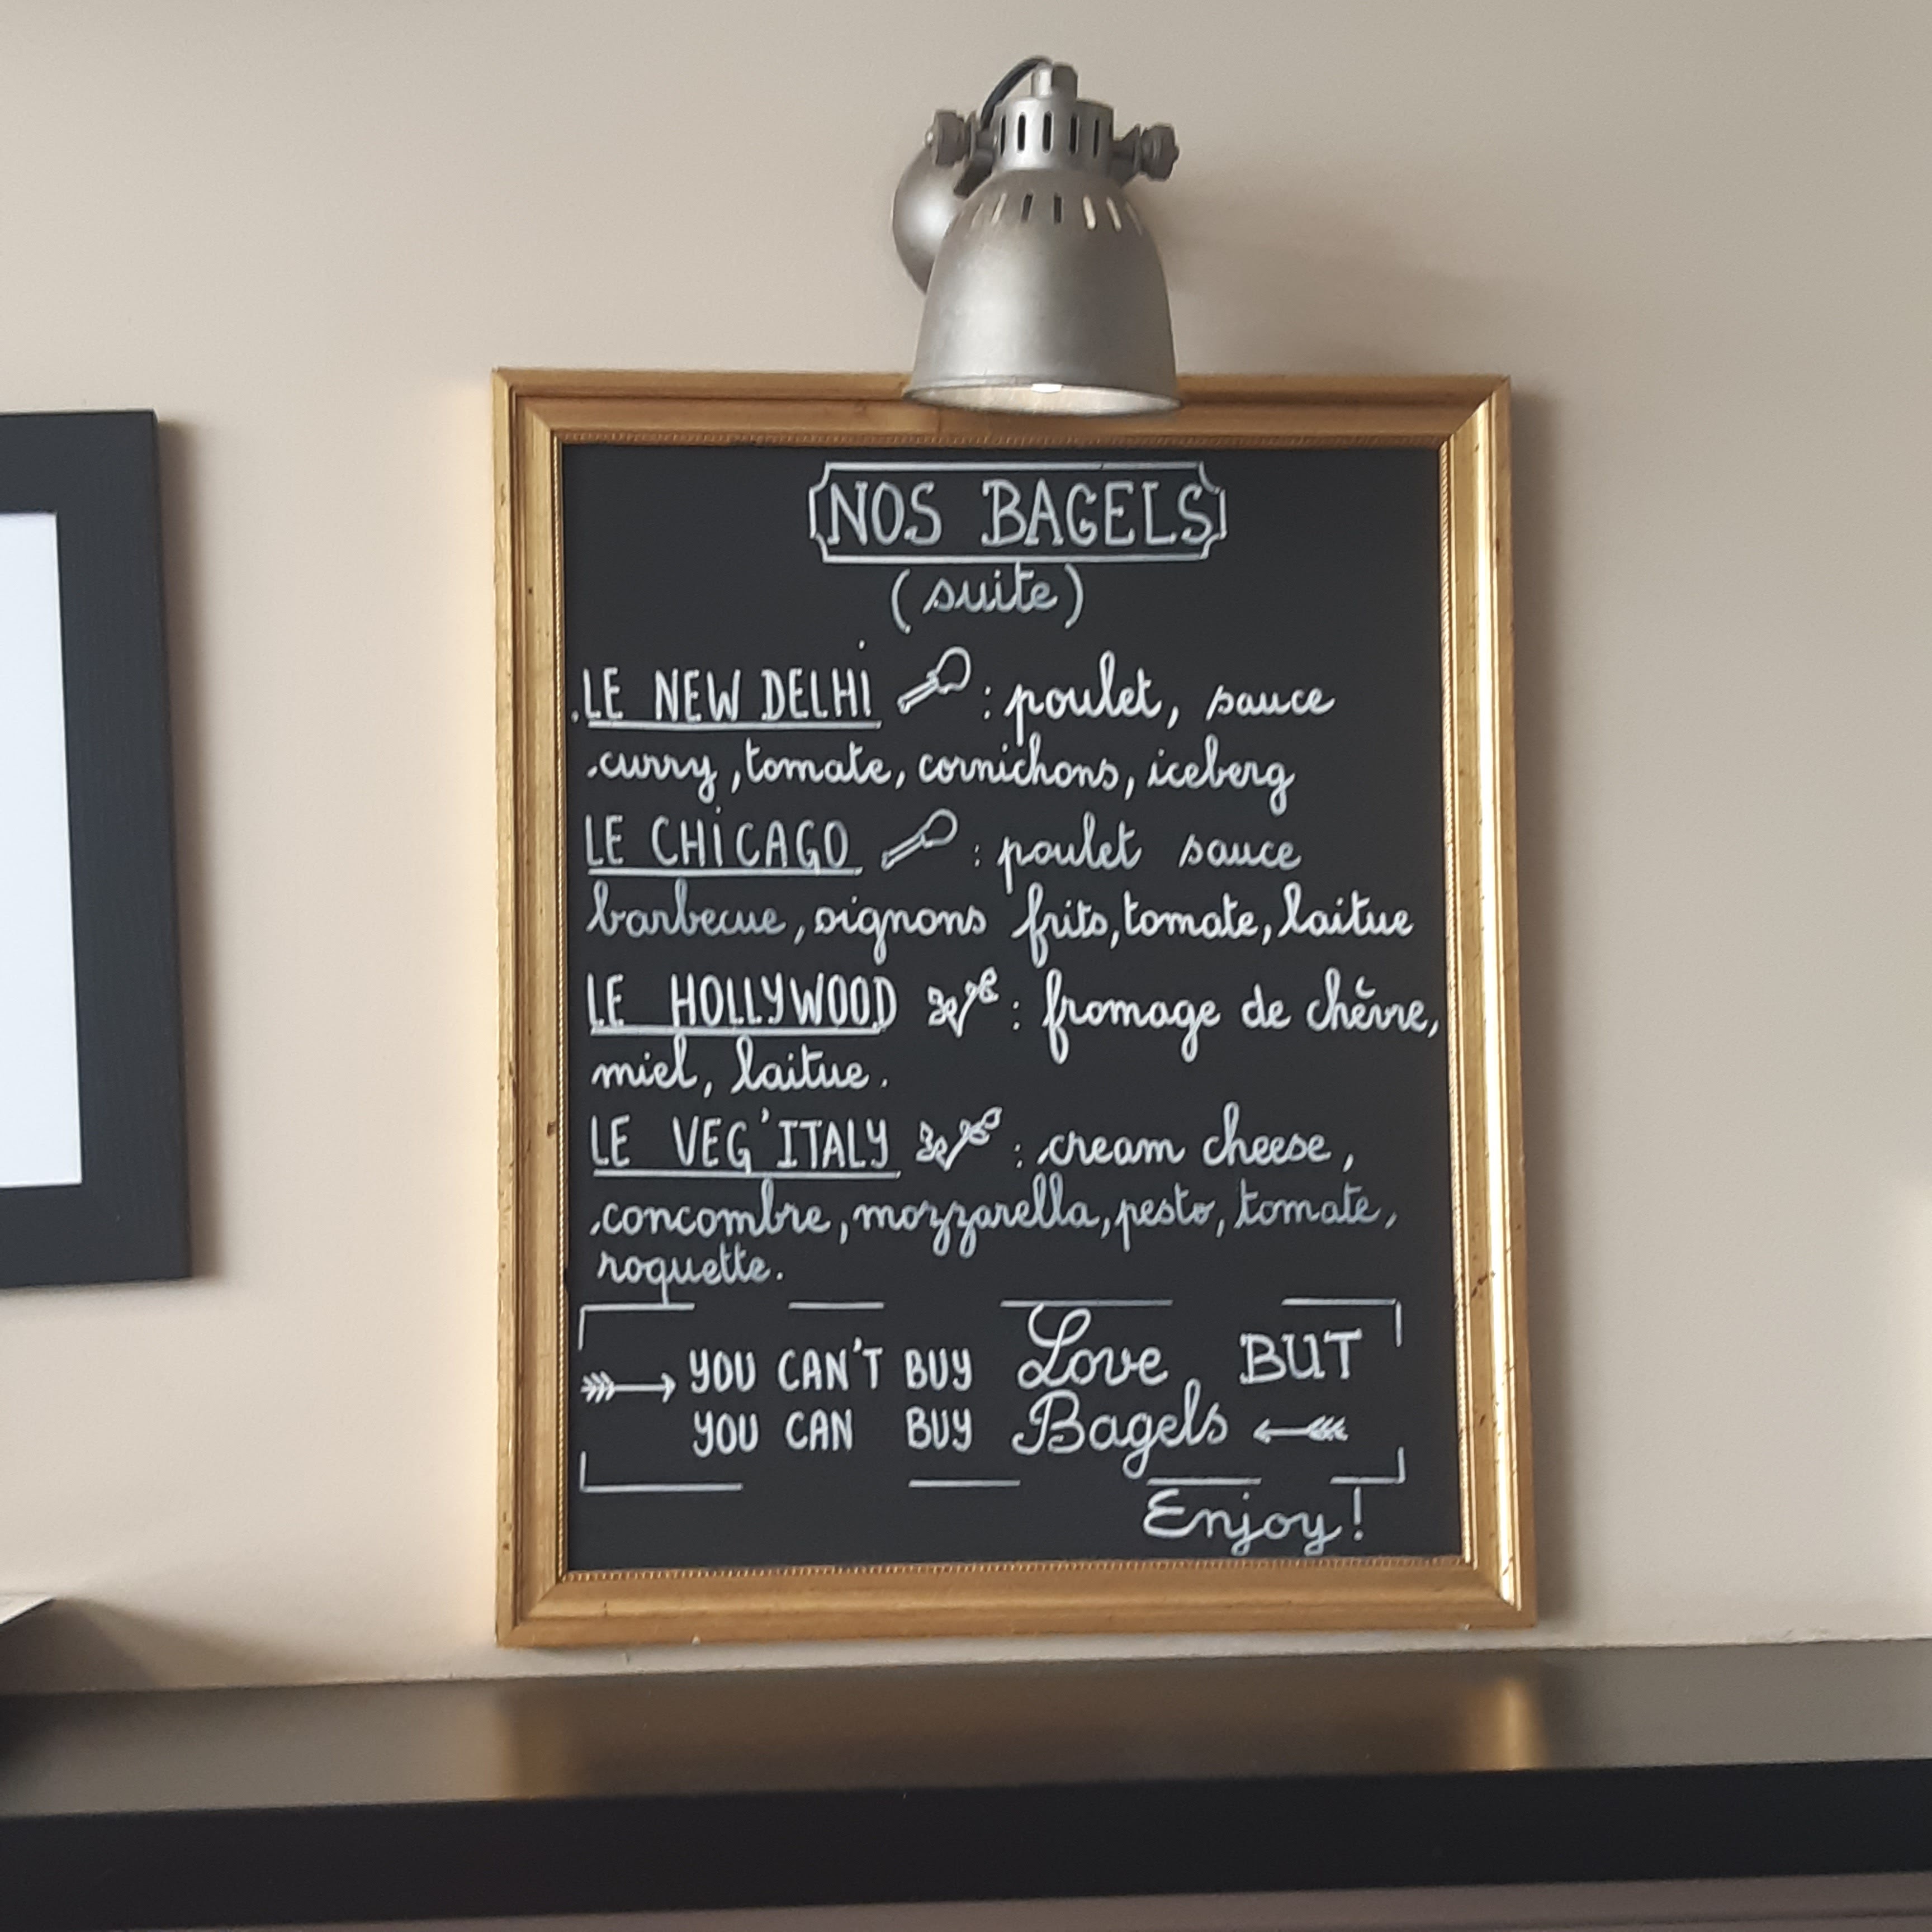 NOS BAGELS
(suite)
LE NEW DELHI : poulet, sauce
curry, tomate, cornichons, iceberg
LE CHICAGO : poulet sauce
barbecue, oignons frits, tomate, laitue
LE HOLLYWOOD : fromage de chèvre,
miel, laitue.
LE VEG'ITALY : cream cheese,
concombre, mozzarella, pesto, tomate,
roquette.
YOU CAN'T BUY Love BUT
YOU CAN BUY Bagels
Enjoy!